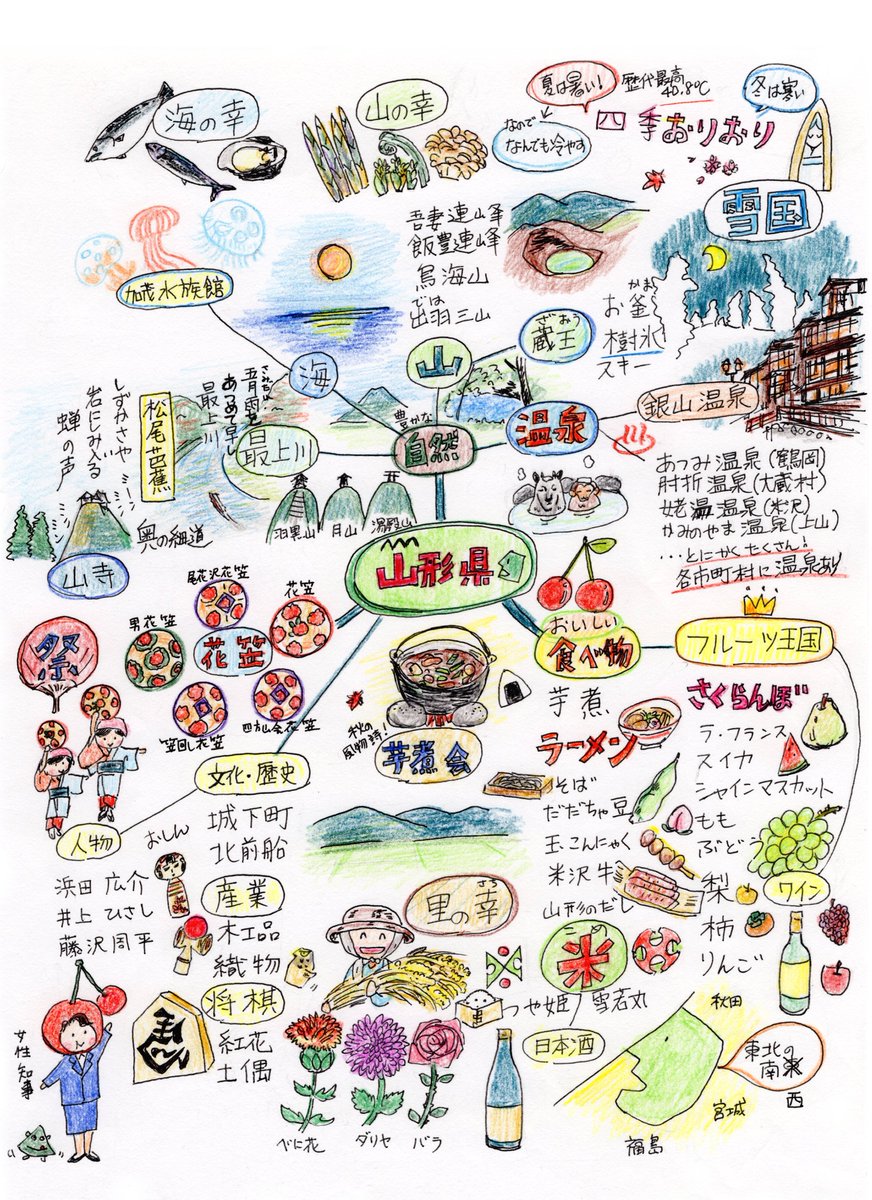 海の幸
山の幸
夏は暑い!
歴代最高
40.8℃
なので
なんでも冷やす
冬は寒い
四季おりおり
雪国
加茂水族館
吾妻連峰
飯豊連峰
鳥海山
では
出羽三山
ざおう
蔵王
かま
お釜
樹氷
スキー
海
山
豊かな
自然
温泉
銀山温泉
あつみ温泉(鶴岡)
肘折温泉(大蔵村)
姥湯温泉(米沢)
かみのやま温泉(上山)
…とにかくたくさん!
各市町村に温泉あり
最上川
さみだれ
五月雨を
あつめて早し
最上川
松尾芭蕉
しずかさや
岩にしみ入る
蝉の声
ミーン
ミーン
奥の細道
山寺
羽黒山
月山
湯殿山
山形県
祭
尾花沢花笠
花笠
男花笠
花笠
笠回し花笠
四方山会花笠
おいしい
食べ物
フルーツ王国
秋の
風物詩!
芋煮会
芋煮
ラーメン
そば
だだちゃ豆
玉こんにゃく
米沢牛
山形のだし
さくらんぼ
ラ・フランス
スイカ
シャインマスカット
もも
ぶどう
梨
柿
りんご
ワイン
文化・歴史
城下町
北前船
人物
浜田広介
井上ひさし
藤沢周平
おしん
産業
木工品
織物
将棋
紅花
土偶
女性知事
さち
里の幸
米
つや姫
雪若丸
日本酒
べに花
ダリヤ
バラ
秋田
宮城
福島
東北の
南東
西